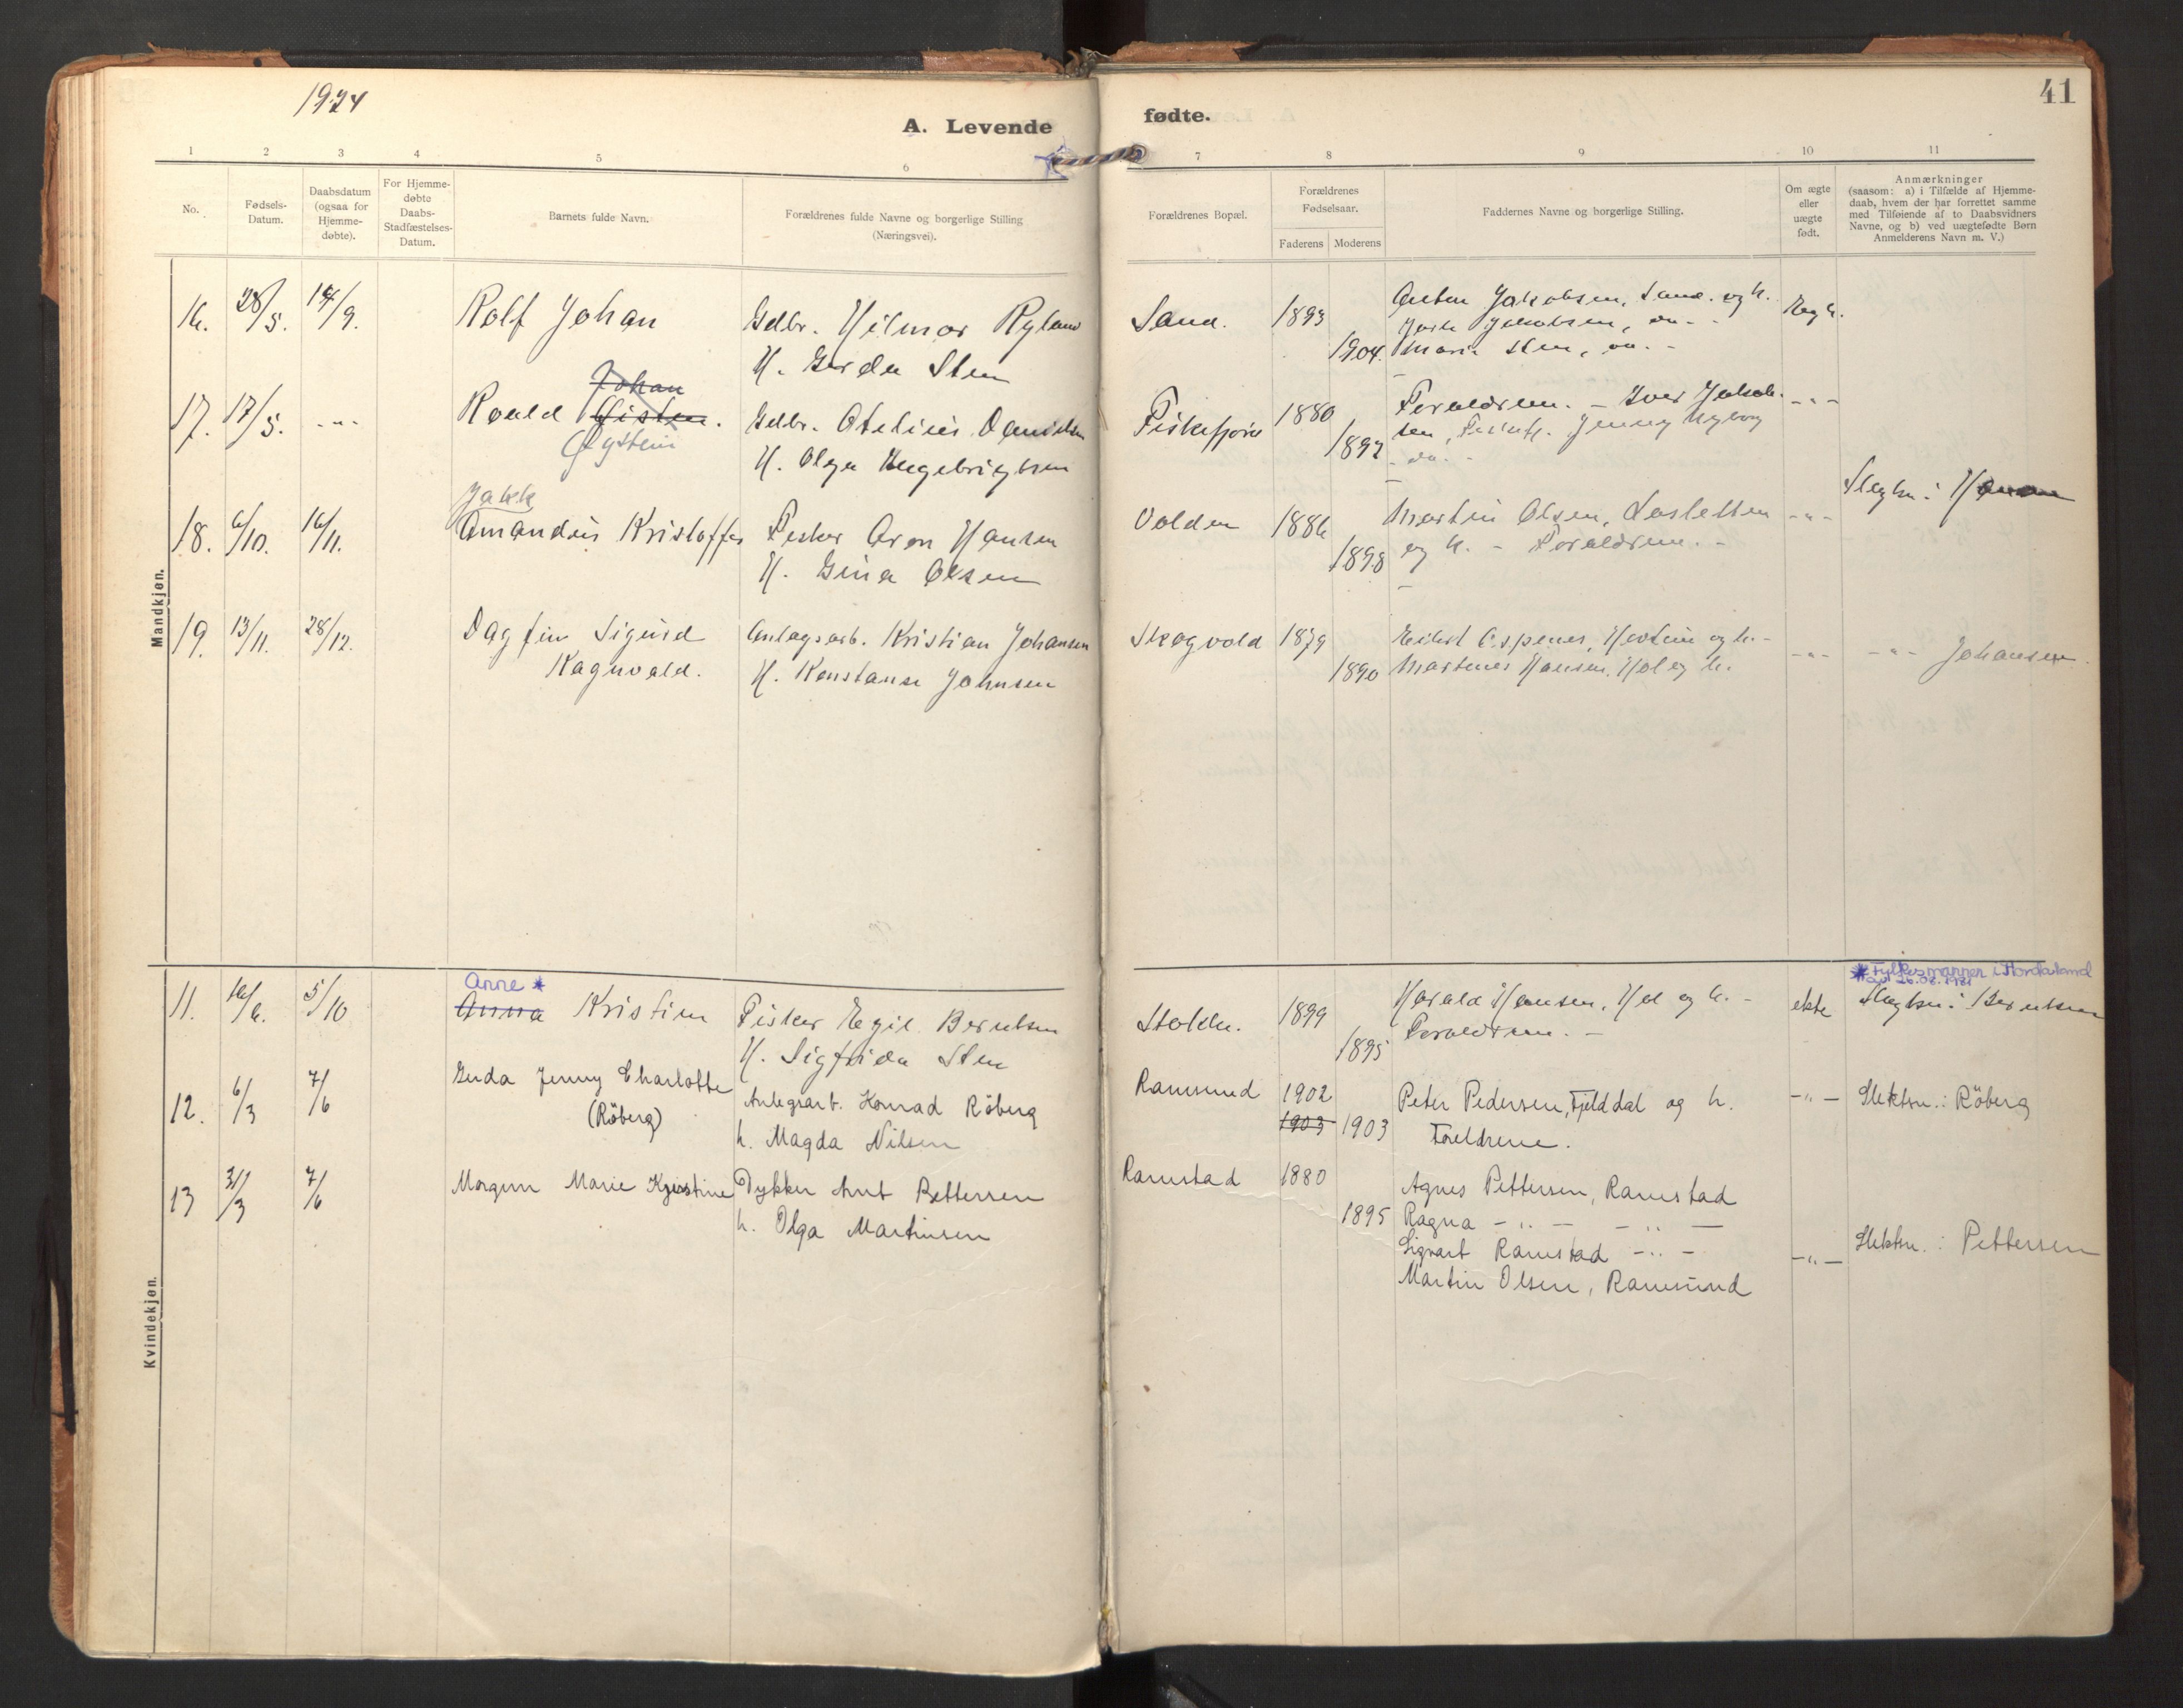 1924
41
A. Levende
fødte.
1 2 3 4 5 6
7 8 9 10 11
No.
Fødsels-
Datum.
Daabsdatum
(ogsaa for
Hjemme-
døbte).
For Hjemme-
døbte
Daabs-
Stadfæstelses-
Datum.
Barnets fulde Navn.
Forældrenes fulde Navne og borgerlige Stilling
(Næringsvei).
Forældrenes Bopæl.
Forældrenes
Fødselsaar.
Faderens Moderens
Faddernes Navne og borgerlige Stilling.
Om ægte
eller
uægte
født.
Anmærkninger
(saasom: a) i Tilfælde af Hjemme-
daab, hvem der har forrettet samme
med Tilføiende af to Daabsvidners
Navne, og b) ved uægtefødte Børn
Anmelderens Navn m. V.)
Mandkjøn.
16. 28/5. 14/9. Rolf Johan Gdbr. Hilmar Ryland
H. Gerda Sten
Sand. 1893 Anton Jakobsen, Sand. og h.
Jakobsen, do. -
1904. Marie Sten, do. -
Johan
17. 17/5. -"- Roald Øisten. Gdbr. Otelius Danielsen
Øystein
H. Olga Ingebrigtsen
Fiskefjord 1880 Forældrene. - Iver Jakob- -"-
1892 sen, Jenny Nyborg
do. -
Jakk
18. 6/10. 16/11. Amandus Kristoffer Fisker Aron Hansen
H. Gina Olsen
Volden 1886 Martin Olsen, -"- Slegtsn: Hansen
1898 og h. - Forældrene. -
19. 13/11. 28/12. Dagfin Sigurd Anlegsarb. Kristian Johansen
Ragnvald. H. Konstanse Johnsen
Skogvold 1879 Espenes, og h. - -"- -"- Johansen.
1890 Martines Hansen, Hol og h.
Kvindekjøn.
Anne *
* Fylkesmannen i Hordaland
26.08.1981
11. 16/6. 5/10 Anna Kristine Fisker Egil Berntsen
H. Sigfrida Sten
1899 Harald Hansen, Hol og h. - ekte Slegtsn: Berntsen
1895 Forældrene. -
12. 6/3 7/6 Gerda Jenny Charlotte Anlegsarb. Konrad Röberg
(Röberg) h. Magda Nilsen
Ramsund 1902 Peter Pedersen, Fjelddal og h. -"- Slektsn.: Röberg
1903 1903 Foreldrene.
13 31/3 7/6 Morgun Marie Kristine Dykker Arnt Pettersen
h. Olga Martinsen
Ramstad 1880 Agnes Pettersen, Ramstad
1895 Ragna -"- -"-
Sigvart Ramstad -"- -"- Slektsn.: Pettersen
Martin Olsen, Ramsund